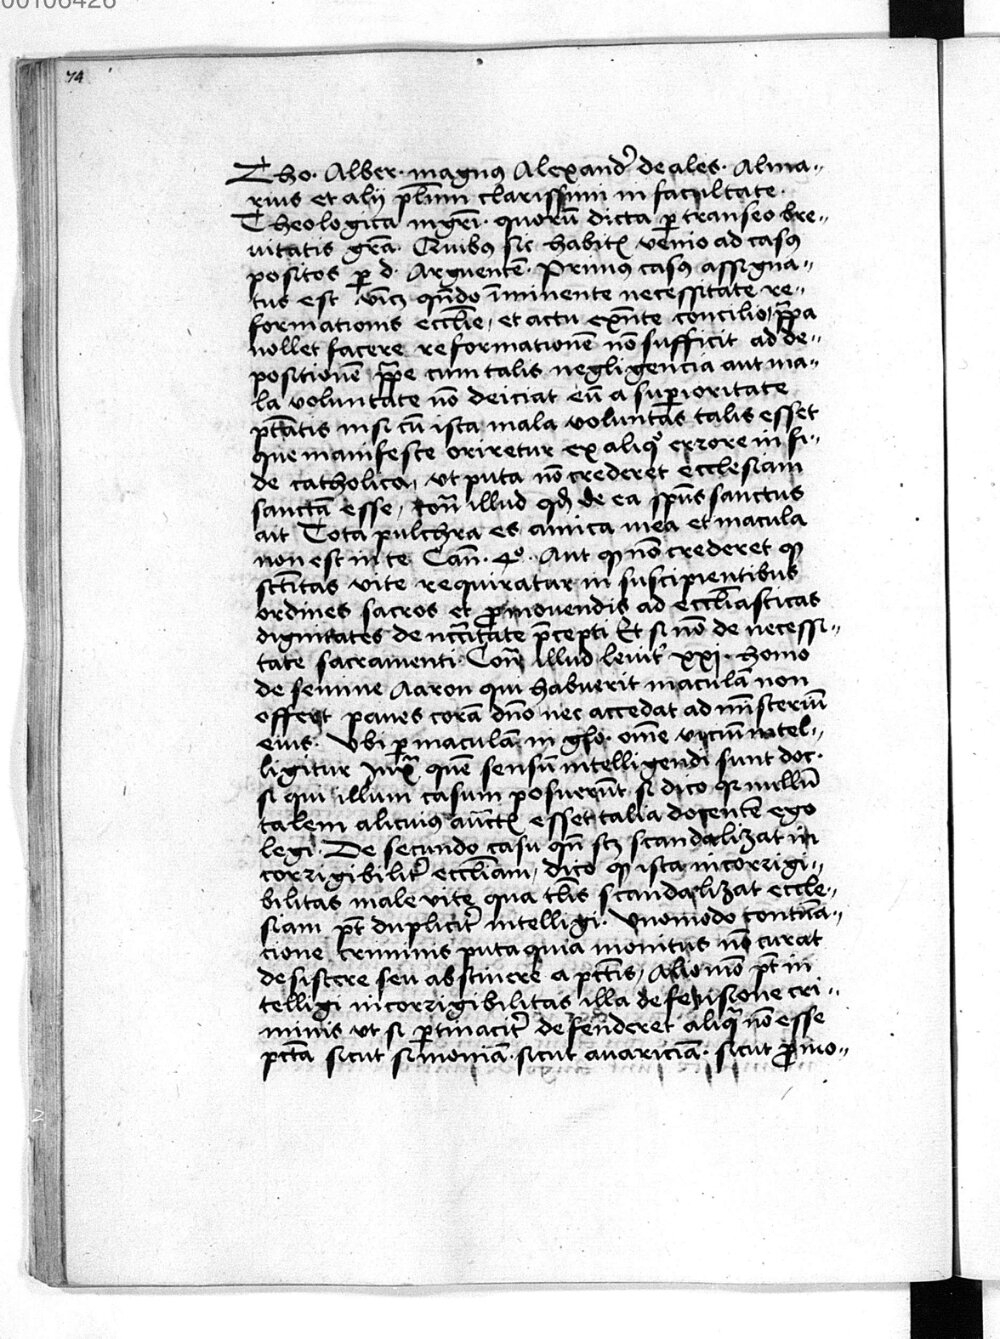 00106426
74
Tho. Alber. magnꝯ Alexand᷑ de ales. Alma⸗
rius et alij pl̄imi clarissimi in facultate
Theologica mgr̄i. quorū dicta ꝑtranseo bre⸗
uitatis grā. Quibꝯ sic habitꝭ venio ad casꝯ
positos ꝑ d. Arguentē. Primꝯ casꝯ assigna⸗
tus est vicꝫ qn̄do īminente necessitate re⸗
formationis eccl̄ie, et actu exn̄te concilio, pp̄a
nollet facere reformationē nō sufficit ad de⸗
positionē pp̄e cum talis negligencia aut ma⸗
la voluntate nō deiciat eū a superioritate
ptātis nisi cū ista mala voluntas talis esset
que manifeste oriretur ex aliqͦ errore in fi⸗
de catholica, vt puta nō crederet ecclesiam
sanctā esse, cōtͣ illud qđ de ea spūs sanctus
ait Tota pulchra es amica mea et macula
non est in te Can̄. 4º. Aut ꝙ nō crederet ꝙ
sctītas vite requiratur in suscipientibus
ordines sacros et ꝓmouendis ad eccl̄iasticas
dignitates de nccītate p̄cepti Et si nō de necessi⸗
tate sacramenti. Con̄ illud leuit᷑ xxj. homo
de semine Aaron qui habuerit maculā non
offerat panes corā dn̄o nec accedat ad mīsteriū
eius. Vbi ꝑ maculam in glo. om̄e viciū intel⸗
ligitur Iuxͣ quē sensū intelligendi sunt doc.
si qui illum casum posuerūt, si dico qꝛ nullū
talem alicuiꝯ auctꝭ esset talia docentē ego
legi. De secundo casu qn̄ scꝫ scandalizat in
corrigibilit᷑ eccl̄iam, dico ꝙ ista incorrigi⸗
bilitas male vite qua tl̄is scandalizat eccle⸗
siam pt̄ duplicit᷑ intelligi. Vnomodo contīa⸗
cione criminis puta quia monitus nō curat
desistere seu abstinere a pctīs, Aliomō pt̄ in
telligi incorrigibilitas illa defensione cri⸗
minis vt si ꝑtinacit᷑ defenderet aliqͣ nō esse
pctā sicut simoniā. sicut auariciā. sicut ꝓmo⸗